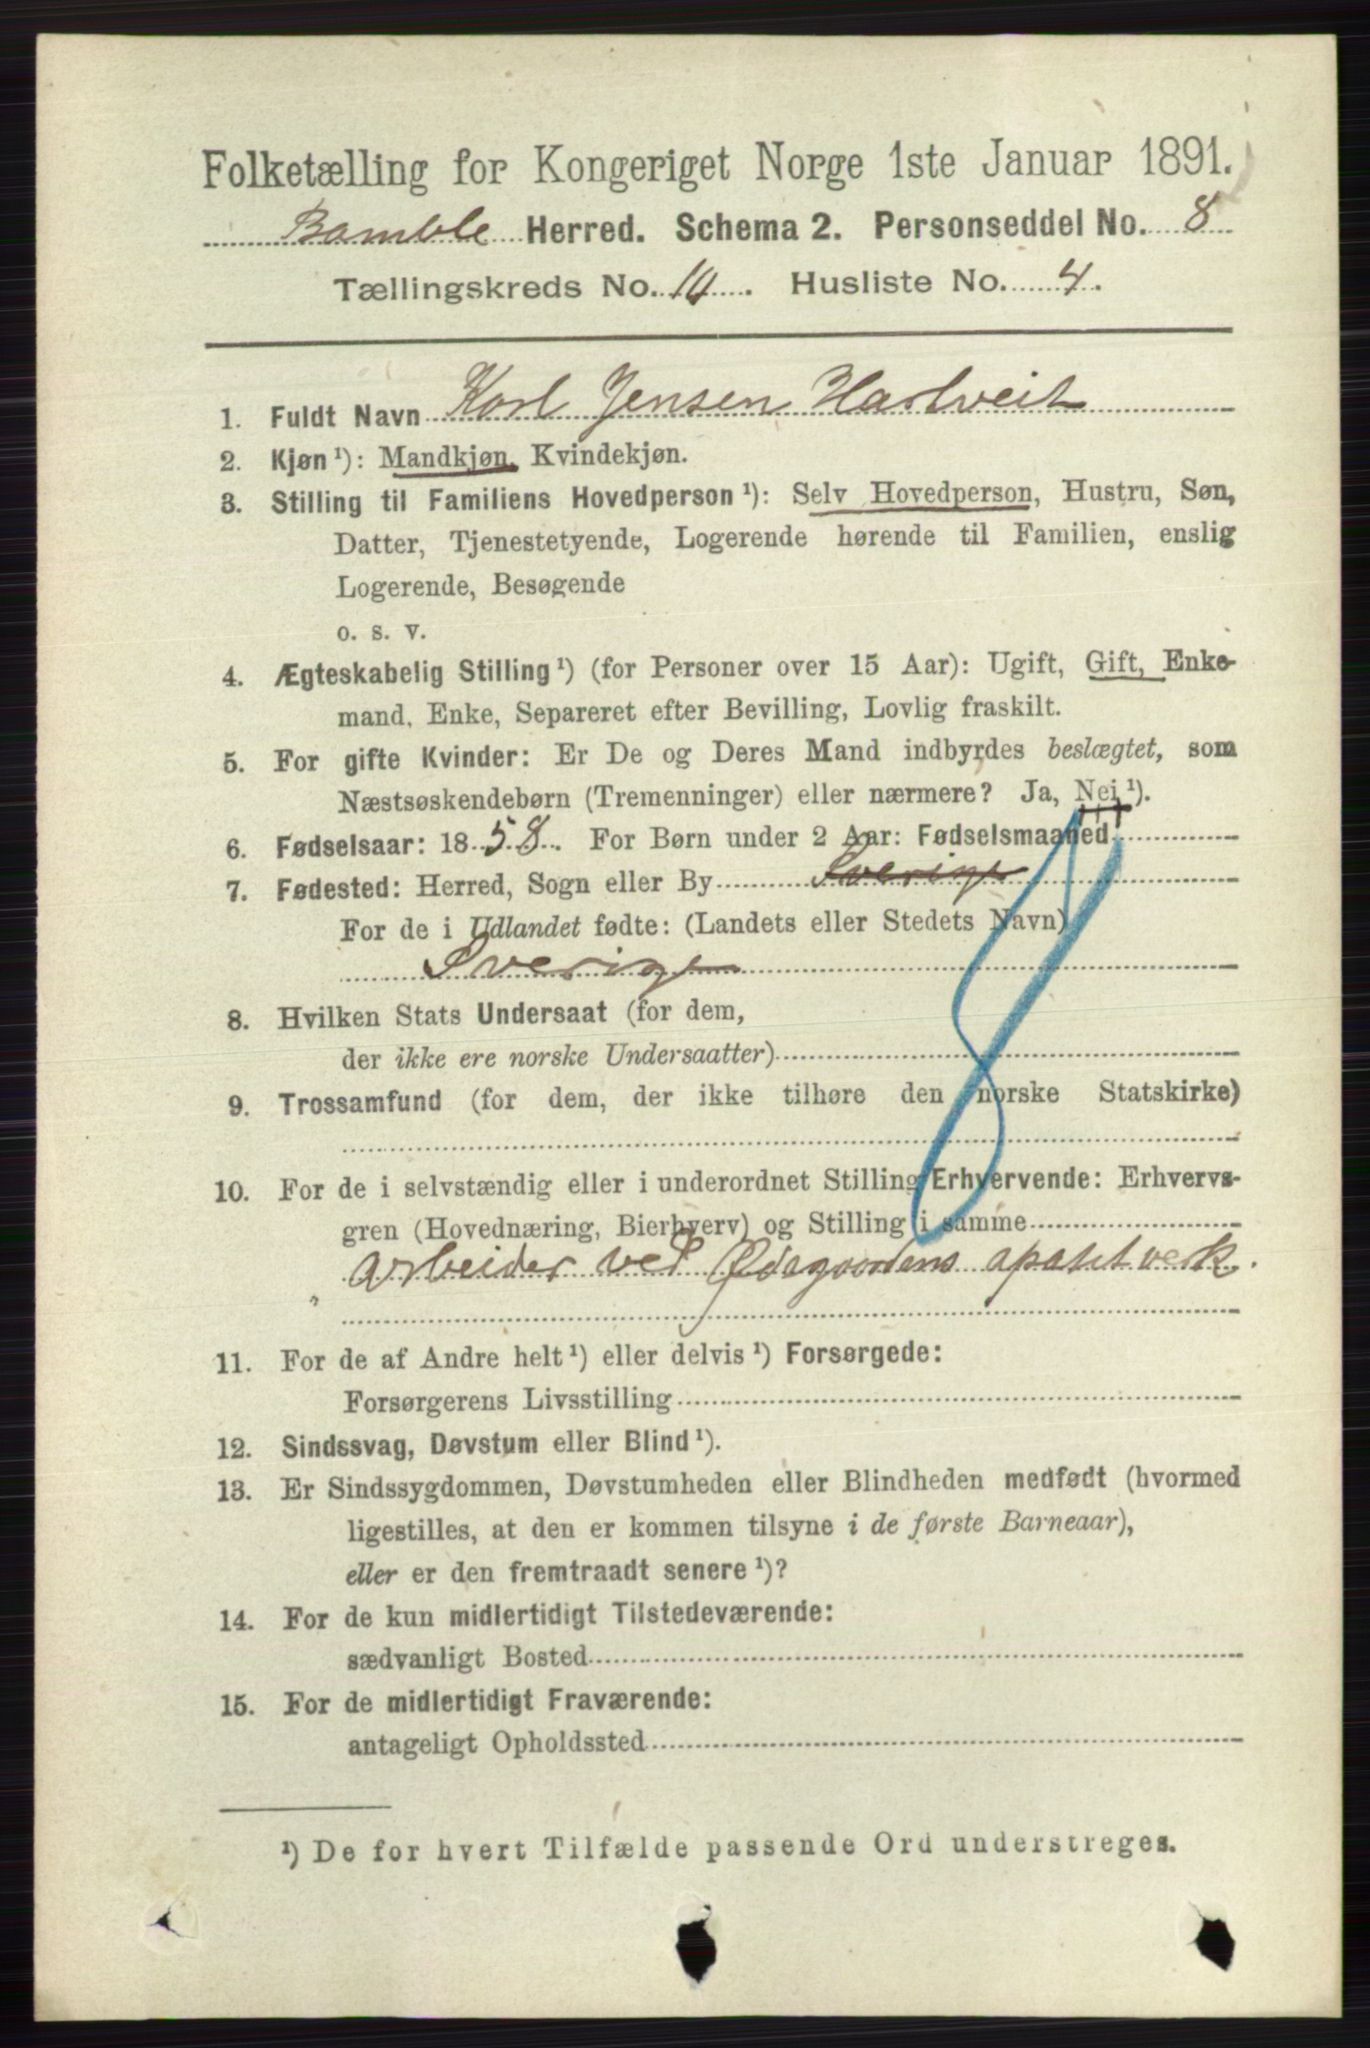 Folketælling for Kongeriget Norge 1ste Januar 1891.
Bamble Herred. Schema 2. Personseddel No. 8
Tællingskreds No. 10. Husliste No. 4.
1. Fuldt Navn Karl Jensen Hartveit
2. Kjøn ¹): Mandkjøn, Kvindekjøn.
3. Stilling til Familiens Hovedperson ¹): Selv Hovedperson, Hustru, Søn,
Datter, Tjenestetyende, Logerende hørende til Familien, enslig
Logerende, Besøgende
o. s. v.
4. Ægteskabelig Stilling ¹) (for Personer over 15 Aar): Ugift, Gift, Enke-
mand, Enke, Separeret efter Bevilling, Lovlig fraskilt.
5. For gifte Kvinder: Er De og Deres Mand indbyrdes beslægtet, som
Næstsøskendebørn (Tremenninger) eller nærmere? Ja, Nei ¹).
6. Fødselsaar: 1858. For Børn under 2 Aar: Fødselsmaaned
7. Fødested: Herred, Sogn eller By Sverige
For de i Udlandet fødte: (Landets eller Stedets Navn)
Sverige
8. Hvilken Stats Undersaat (for dem,
der ikke ere norske Undersaatter)
9. Trossamfund (for dem, der ikke tilhøre den norske Statskirke)
10. For de i selvstændig eller i underordnet Stilling Erhvervende: Erhvervs-
gren (Hovednæring, Bierhverv) og Stilling i samme
arbeider ved Ødegaardens apatitverk.
11. For de af Andre helt ¹) eller delvis ¹) Forsørgede:
Forsørgerens Livsstilling
12. Sindssvag, Døvstum eller Blind ¹).
13. Er Sindssygdommen, Døvstumheden eller Blindheden medfødt (hvormed
ligestilles, at den er kommen tilsyne i de første Barneaar),
eller er den fremtraadt senere ¹)?
14. For de kun midlertidigt Tilstedeværende:
sædvanligt Bosted
15. For de midlertidigt Fraværende:
antageligt Opholdssted
¹) De for hvert Tilfælde passende Ord understreges.